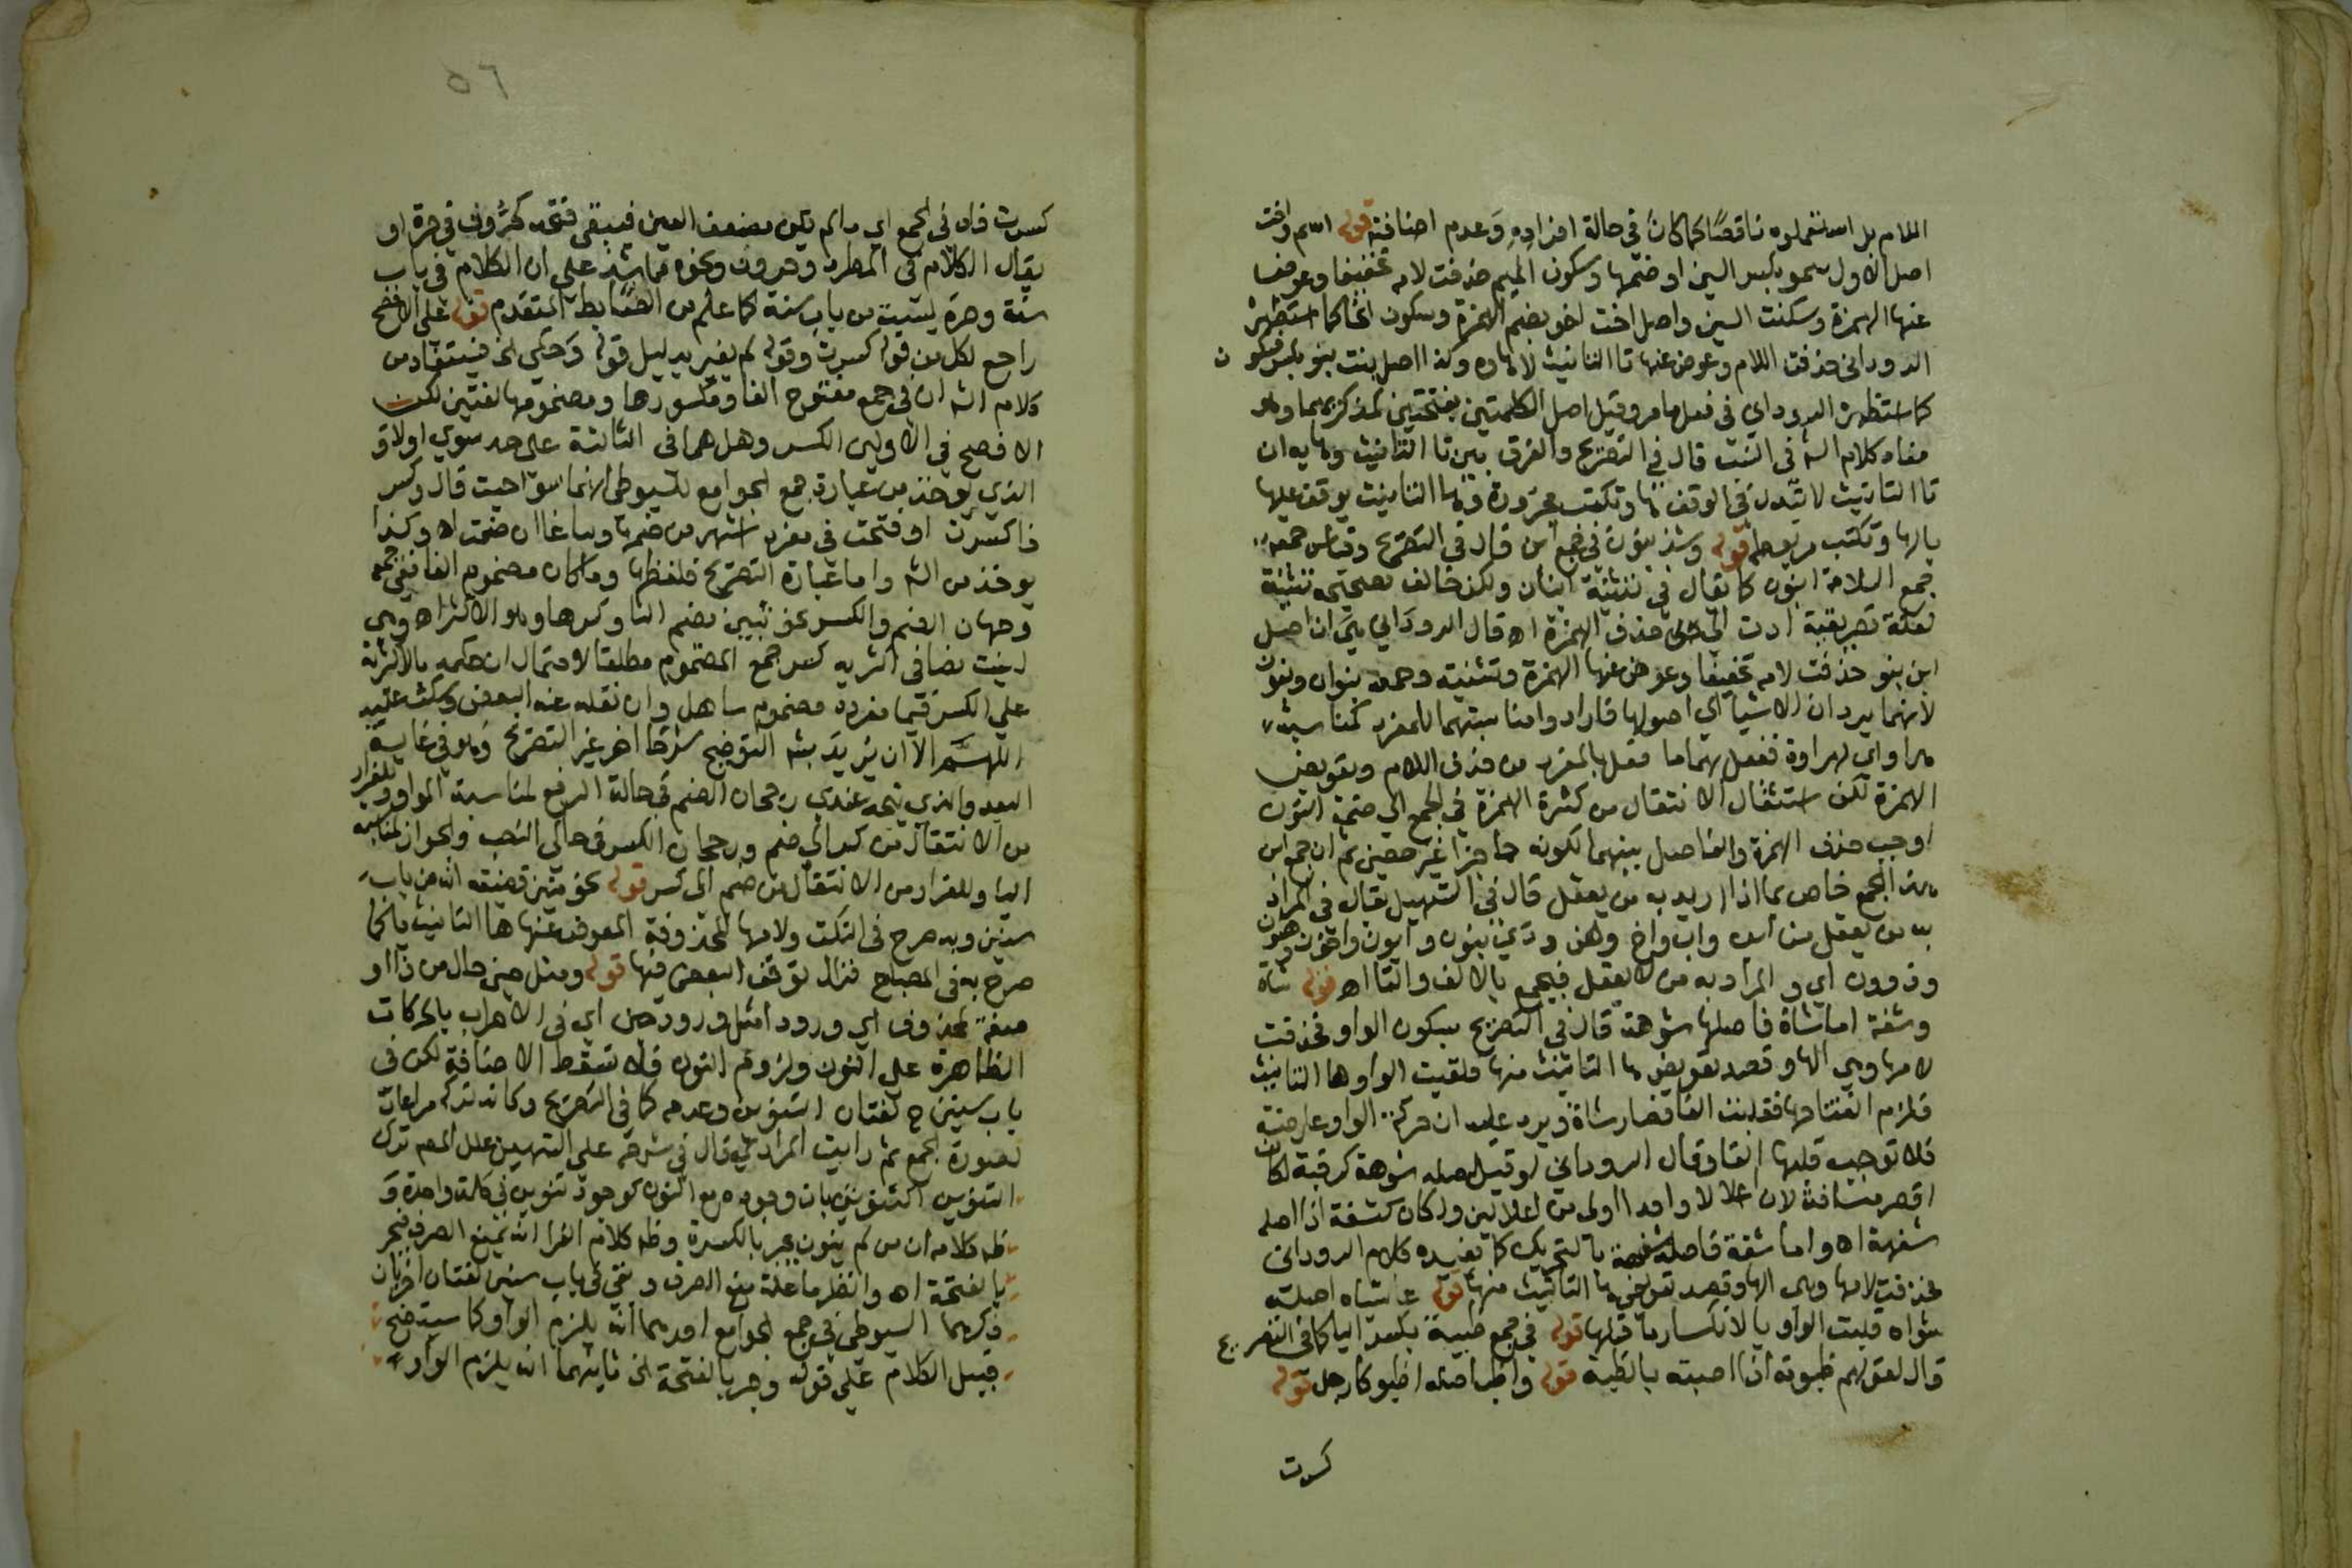 اللام بل استعملوه ناقصا كما كان في حالة افراده وعدم اضافته قوله اسم واخت
اصل الاول سمو بكسر السين او ضمها وسكون الميم حذفت لامه تخفيفا وعوض
عنها الهمزة وسكنت السين واصل اخت اخو بضم الهمزة وسكون الخا كما استظهره
الدوداني حذفت اللام وعوض عنها تا التانيث لا هاوه وكذا اصل بنت بنو بكسر فسكون
كما استظهره الروداني ففعل بها ما مر وقيل اصل الكلمتين بفتحتين كمذكريهما وهو
مفاد كلام الشه في النسب قال في التصريح والفرق بين تا التانيث وهايه ان
تا التانيث لا تبدل في الوقف ها وتكتب مجرورة وها التانيث يوقف عليها
بالها وتكتب مربوطه قوله وشذ بنون في جمع ابن قال في التصريح وقياس جمعه
جمع السلامة ابنون كما يقال في تثنيته ابنان ولكن خالف تصحيحه تثنيته
لعلة تصريفية ادت الى حذف الهمزة اه قال الروداني هي ان اصل
ابن بنو حذفت لامه تخفيفا وعوض عنها الهمزة وتثنيته وجمعه بنوان وبنون
لانهما يردان الاشيا الى اصولها فارادوا مناسبتهما للمفرد كمناسبة
هراوي لهراوة ففعل بهما ما فعل بالمفرد من حذف اللام وتعويض
الهمزة لكن استثقال الانتقال من كثرة الهمزة في الجمع الى ضمة النون
اوجب حذف الهمزة والفاصل بينهما لكونه حاجزا غير حصين ثم ان جمع ابن
هذا الجمع خاص بما اذا اريد به من يعقل قال في التسهيل يقال في المراد
به من يعقل من ابن واب واخ وهن وذي بنون وابون واخون وهنون
وذوون اي والمراد به من لا يعقل فيجمع بالالف والتا اه قوله شاة
وشفة اما شاة فاصلها شوهة قال في التصريح بسكون الواو فحذفت
لامها وهي الها وقصد تعويض ها التانيث منها فلقيت الواو ها التانيث
فلزم انفتاحها فقلبت الفا فصار شاة ويرد عليه ان حركة الواو عارضة
فلا توجب قلبها الفا وقال الروداني لو قيل اصله شوهة كرقبة لكان
اقصر مسافة لان اعلالا واحدا اولى من اعلالين ولكان كشفة اذ اصله
شفهة اه واما شفة فاصله شفهة بالتحريك كما يفيده كلام الروداني
فحذفت لامها وهي الها وقصد تعويض ها التانيث منها قوله شياه اصله
شواه قلبت الواو يا لانكسار ما قبلها قوله في جمع ظبية بكسر اليا كما في التصريح
قال لقولهم ظبوته اذا اصبته بالظبة قوله واظب اصله اظبو كارجل قوله
كسرت
٥٦
كسرت فاه في الجمع اي ما لم يكن مضعف العين فيبقى فتحه كحرون في حرة او
يقال الكلام في المطرد وحرون ونحوه مما شذ على ان الكلام في باب
سنة وحرة ليست من باب سنة كما علم من الضابط المتقدم قوله على الافصح
راجع لكل من قوله كسرت وقوله لم يغير بدليل قوله وحكي الخ فيستفاد من
كلام الشه ان في جمع مفتوح الفا ومكسورها ومضمومها لغتين لكن
الافصح في الاولين الكسر وهل هما في الثالثة على حد سوي اولا و
الذي يوخذ من عبارة جمع الجوامع للسيوطي انهما سوا حيث قال وكسر
فا كسرت او فتحت في مفرد اشهر من ضمها وساغا ان ضمت اه وكذا
يوخذ من الشه واما عبارة التصريح فلفظها وما كان مضموم الفا ففي جمعه
وجهان الضم والكسر نحو ثبين بضم الثا وكسرها وهو الاكثر اه وهي
ليست نصا في اكثريه كسر جمع المضموم مطلقا لاحتمال ان حكمه بالاكثرية
على الكسر فيما مفرده مضموم تساهل وان نقله عنه البعض وسكت عليه
اللهم الا ان يريد بشه التوضيح شرحا اخر غير التصريح وهو في غاية
البعد والذي يتجه عندي رجحان الضم في حالة الرفع لمناسبة الواو وللفرار
من الانتقال من كسر الى ضم ورجحان الكسر في حالي النصب والجر لمناسبة
اليا وللفرار من الانتقال من ضم الى كسر قوله نحو مئين قضيته انه من باب
سنين وبه صرح في النكت ولامها المحذوفة المعوض عنها ها التانيث يا كما
صرح به في المصباح فزال توقف البعض فيها قوله ومثل حين حال من ذا او
صفة لمحذوف اي ورودا مثل ورود حين اي في الاعراب بالحركات
الظاهرة على النون ولزوم النون فلا تسقط الاضافة لكن في
باب سنين ح لغتان التنوين وعدمه كما في التصريح وكانه تركه مراعاة
لصورة الجمع ثم رايت المرادي قال في شرحه على التسهيل علل المص ترك
التنوين بان وجوده مع النون كوجود تنوينين في كلمة واحدة و
ظه كلامه ان من لم ينون يجر بالكسرة وظه كلام الفرا انه يمنع الصرف فيجر
بالفتحة اه وانظر ما علة منع الصرف وبقي في باب سنين لغتان اخريان
ذكرهما السيوطي في جمع الجوامع احدهما انه يلزم الواو كما سيتضح
قبيل الكلام على قوله وجر بالفتحة الخ ثانيهما انه يلزم الواو